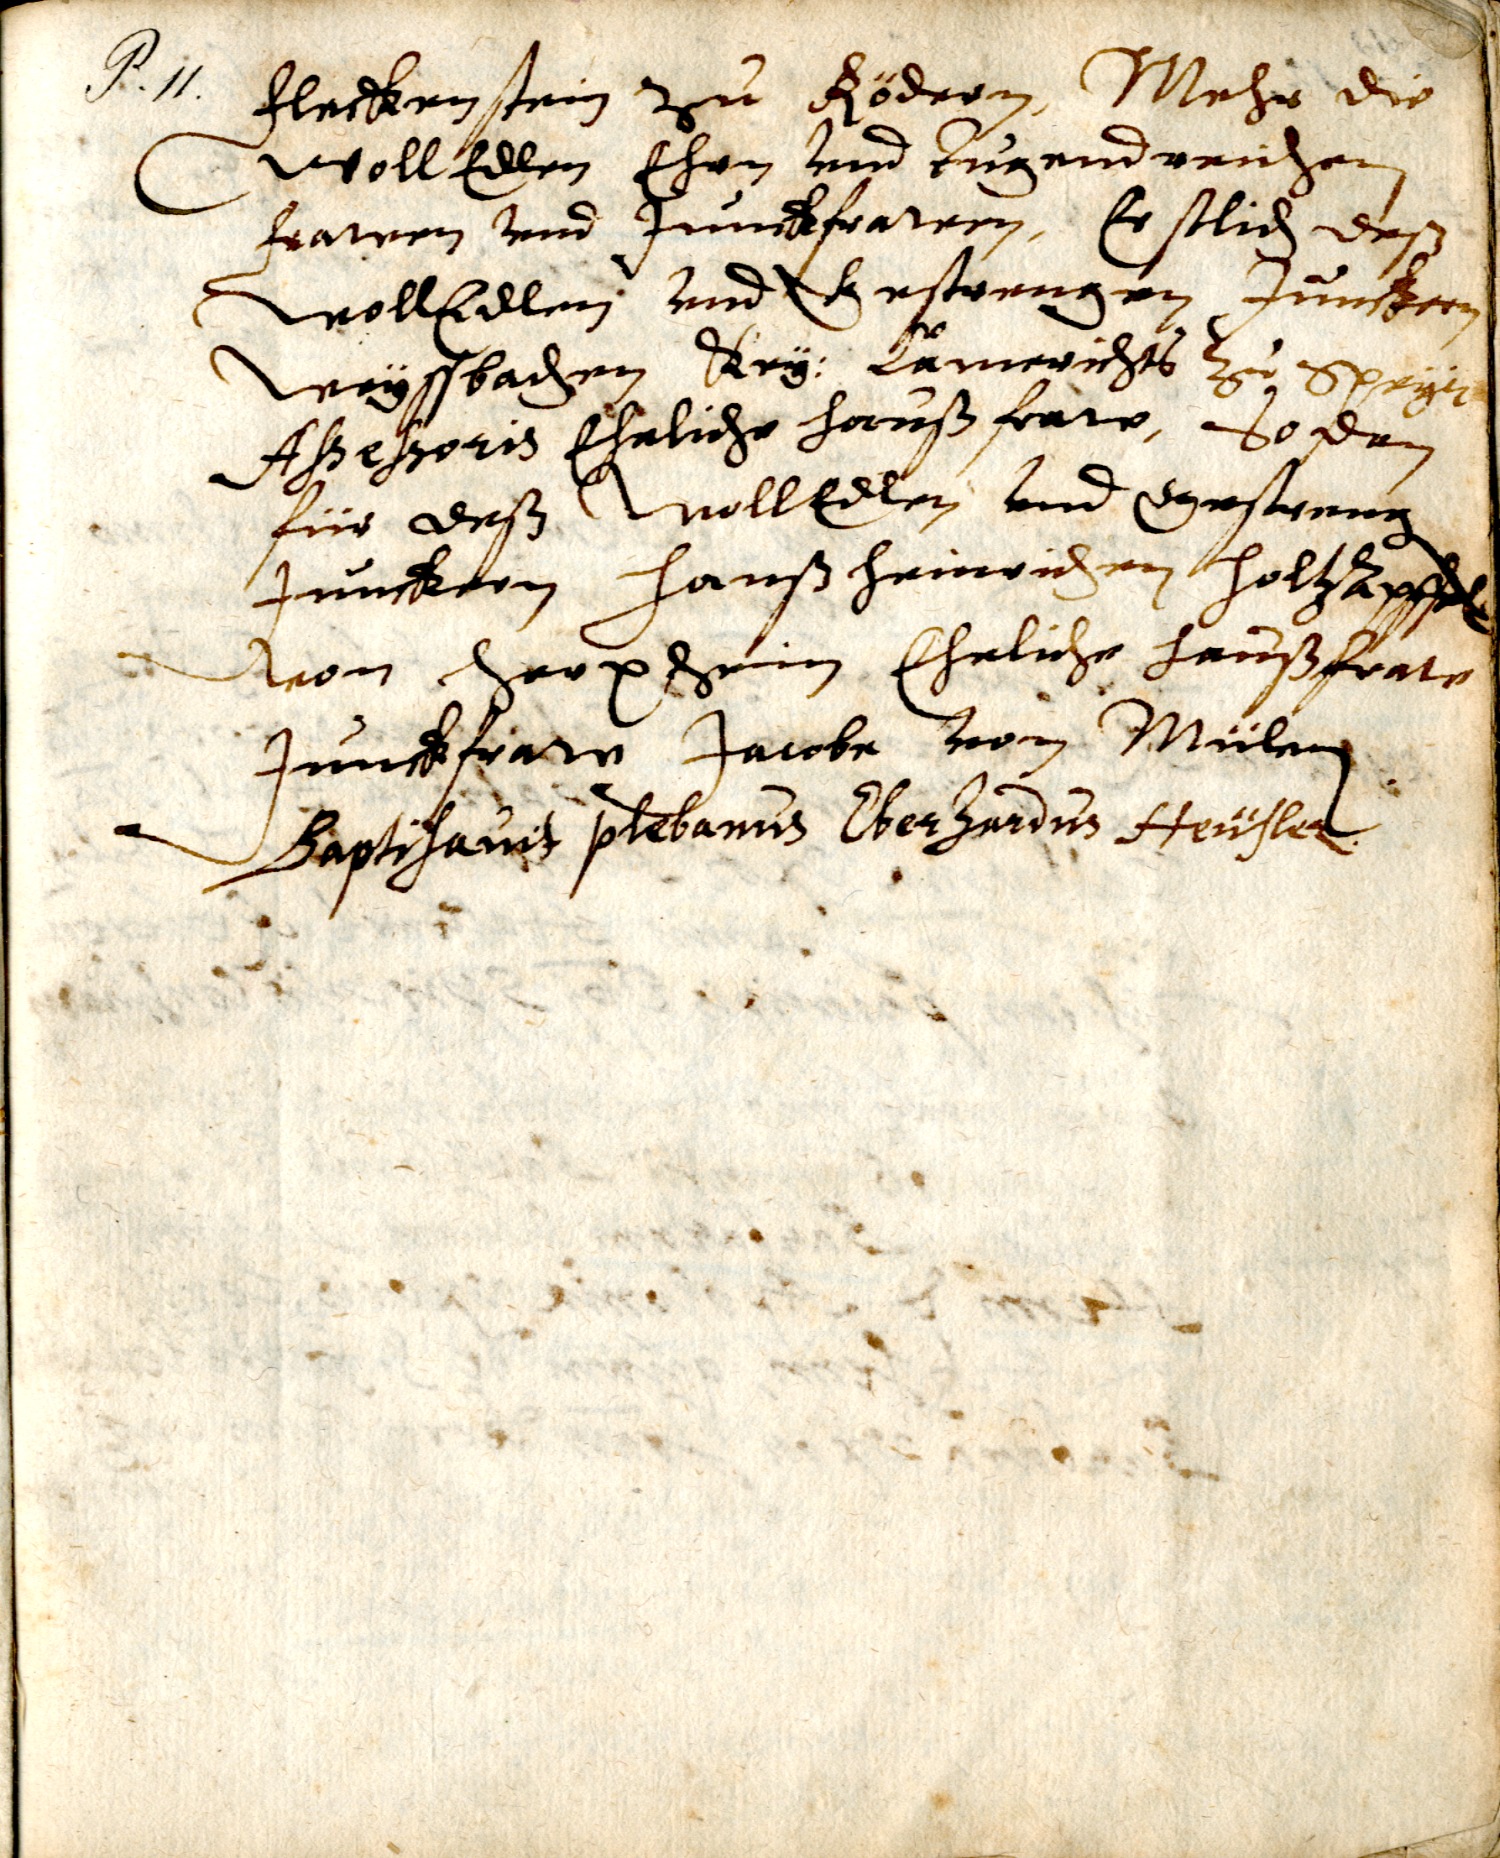 P. 11.
fleckenstein zu Rödern, Mehr die
wollEdlen Ehrn vnd tugendreichen
frawen vnd Junckfrawen, Erstlich deß
wollEdlen vnd Gestrengen Junckern
weyssbachen Key: Camerichts zu Speyir
Assessoris Eheliche haußfraw, So den
für deß wollEdlen vnd Gestreng
Junckern hanß heinrichen holtzapffel
von herxheim Eheliche haußfraw
Junckfraw Jacobe von Mülen
Baptisavit plebanus Eberhardus Heüsler.